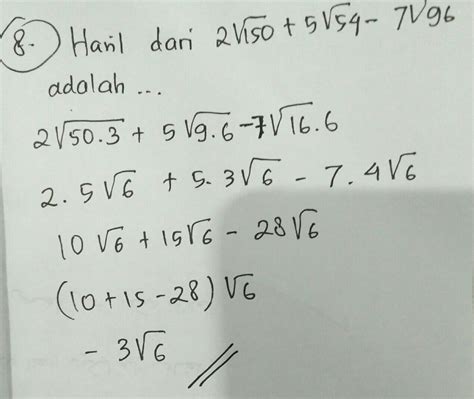 8. Hasil dari 2√150 + 5√54 - 7√96
adalah ...
2√50.3 + 5√9.6 - 7√16.6
2.5√6 + 5.3√6 - 7.4√6
10√6 + 15√6 - 28√6
(10+15-28)√6
- 3√6 //